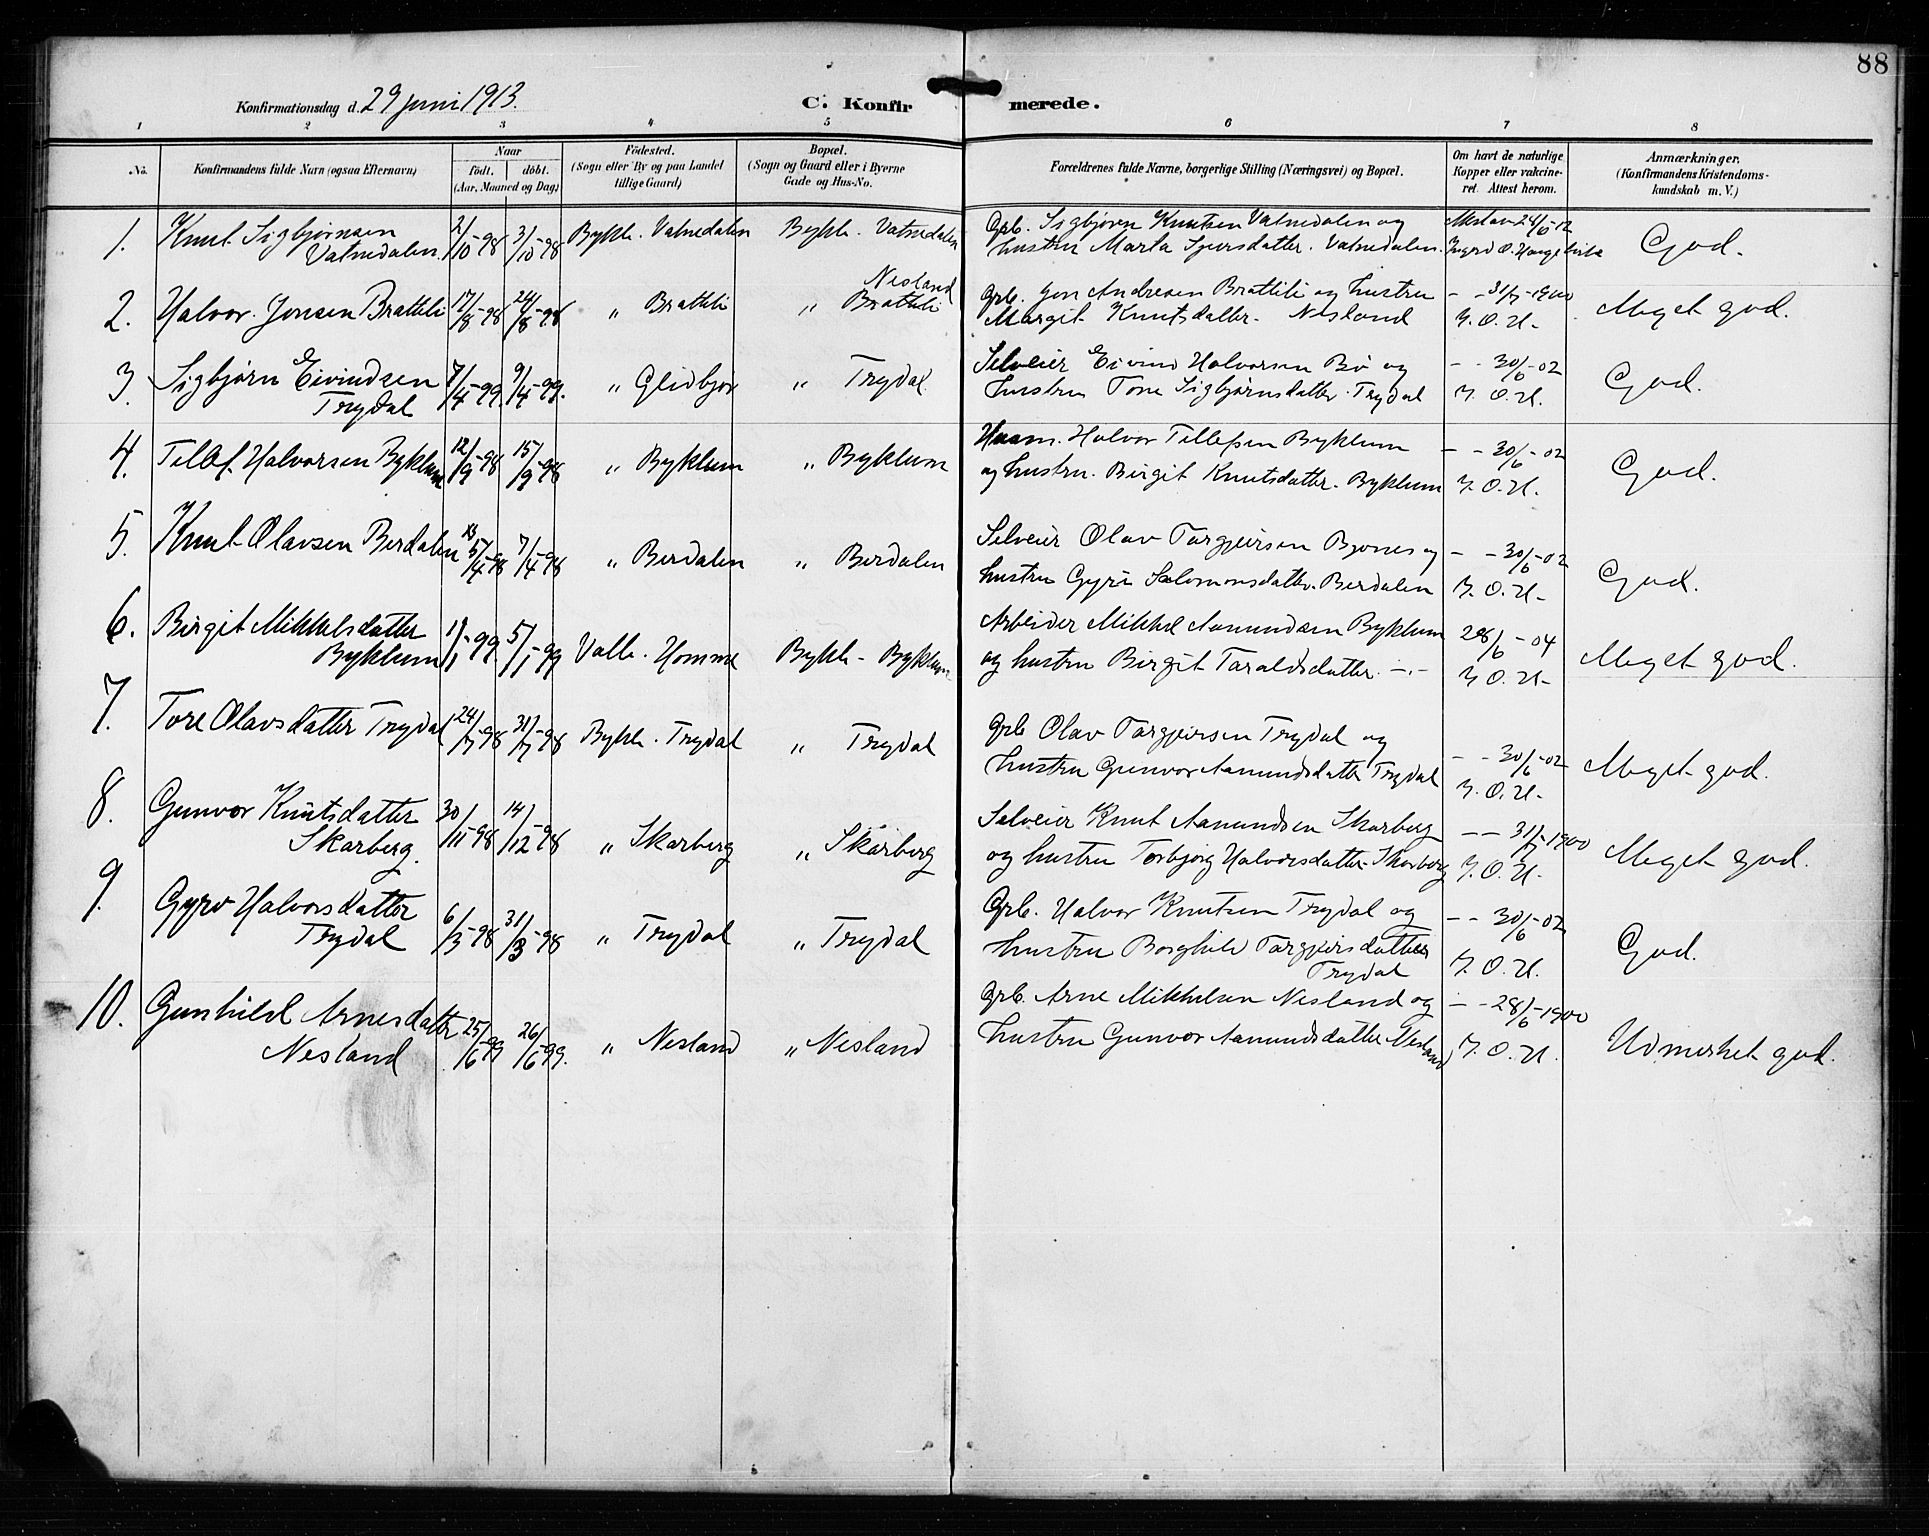 88
Konfirmationsdag d. 29 juni 1913.
C. Konfirmerede.
1 2 3 4 5 6 7 8
No.
Konfirmandens fulde Navn (ogsaa Efternavn)
Naar
født. døbt.
(Aar, Maaned og Dag)
Fødested.
(Sogn eller By og paa Landet
tillige Gaard)
Bopæl.
(Sogn og Gaard eller i Byerne
Gade og Hus-No.
Forældrenes fulde Navne, borgerlige Stilling (Næringsvei) og Bopæl.
Om havt de naturlige
Kopper eller vakcine-
ret. Attest herom.
Anmærkninger.
(Konfirmandens Kristendoms-
kundskab m. V.)
1. Knut Sigbjørnsen
Vatnedalen. 2/10-98 3/10-98 Bykle. Vatnedalen Bykle. Vatnedalen
Grb. Sigbjørn Knutsen Vatnedalen og
hustru Marta Sjursdatter. Vatnedalen.
24/6-12
Ingerd O.
God.
2. Halvor Jonsen Bratteli 17/8-98 24/8-98 " Bratteli
Nesland
" Bratteli
Grb. Jon Andresen Bratteli og hustru
Margit Knutsdatter. Nesland
- - 31/7-1900
I. O. H.
Meget god.
3. Sigbjørn Eivindsen
Trydal 7/4-99. 9/4-99. " Glidbjør " Trydal.
Selveier Eivind Halvorsen Bø og
hustru Tone Sigbjørnsdatter. Trydal
- - 30/6-02
I. O. H.
God.
4. Tellef Halvorsen Byklum 12/9-98 15/9-98 " Byklum " Byklum
Husm. Halvor Tellefsen Byklum
og hustru. Birgit Knutsdatter. Byklum
- - 30/6-02
I. O. H.
God.
5. Knut Olavsen Berdalen 5/4-98 7/4-98 " Berdalen " Berdalen
Selveier Olav Targjeirsen Bjønes og
hustru Gyri Salomonsdatter. Berdalen
- - 30/6-02
I. O. H.
God.
6. Birgit Mikkelsdatter
Byklum 1/1-99. 5/1-99 Valle. Homme Bykle - Byklum
Arbeider Mikkel Aamundsen Byklum
og hustru Birgit Taraldsdatter. -.-
28/6-04
I. O. H.
Meget god.
7. Tore Olavsdatter Trydal 24/7-98 31/7-98 Bykle. Trydal " Trydal
Grb Olav Targjeirsen Trydal og
hustru Gunvor Aamundsdatter Trydal
- - 30/6-02
I. O. H.
Meget god.
8. Gunvor Knutsdatter
Skarberg. 30/11-98 14/12-98 " Skarberg " Skarberg
Selveier Knut Aamundsen Skarberg
og hustru Torbjørg Halvorsdatter. Skarberg
- - 31/7-1900
I. O. H.
Meget god.
9. Gyro Halvorsdatter
Trydal 6/3-98 31/3-98 " Trydal " Trydal
Grb. Halvor Knutsen Trydal og
hustru Borghild Targjeirsdatter
Trydal
- - 30/6-02
I. O. H.
God.
10. Gunhild Arnesdatter
Nesland 25/6-99 26/6-99. " Nesland " Nesland
Grb. Arne Mikkelsen Nesland og
hustru Gunvor Aamundsdatter Nesland
- - 28/6-1900
I. O. H.
Udmerket god.